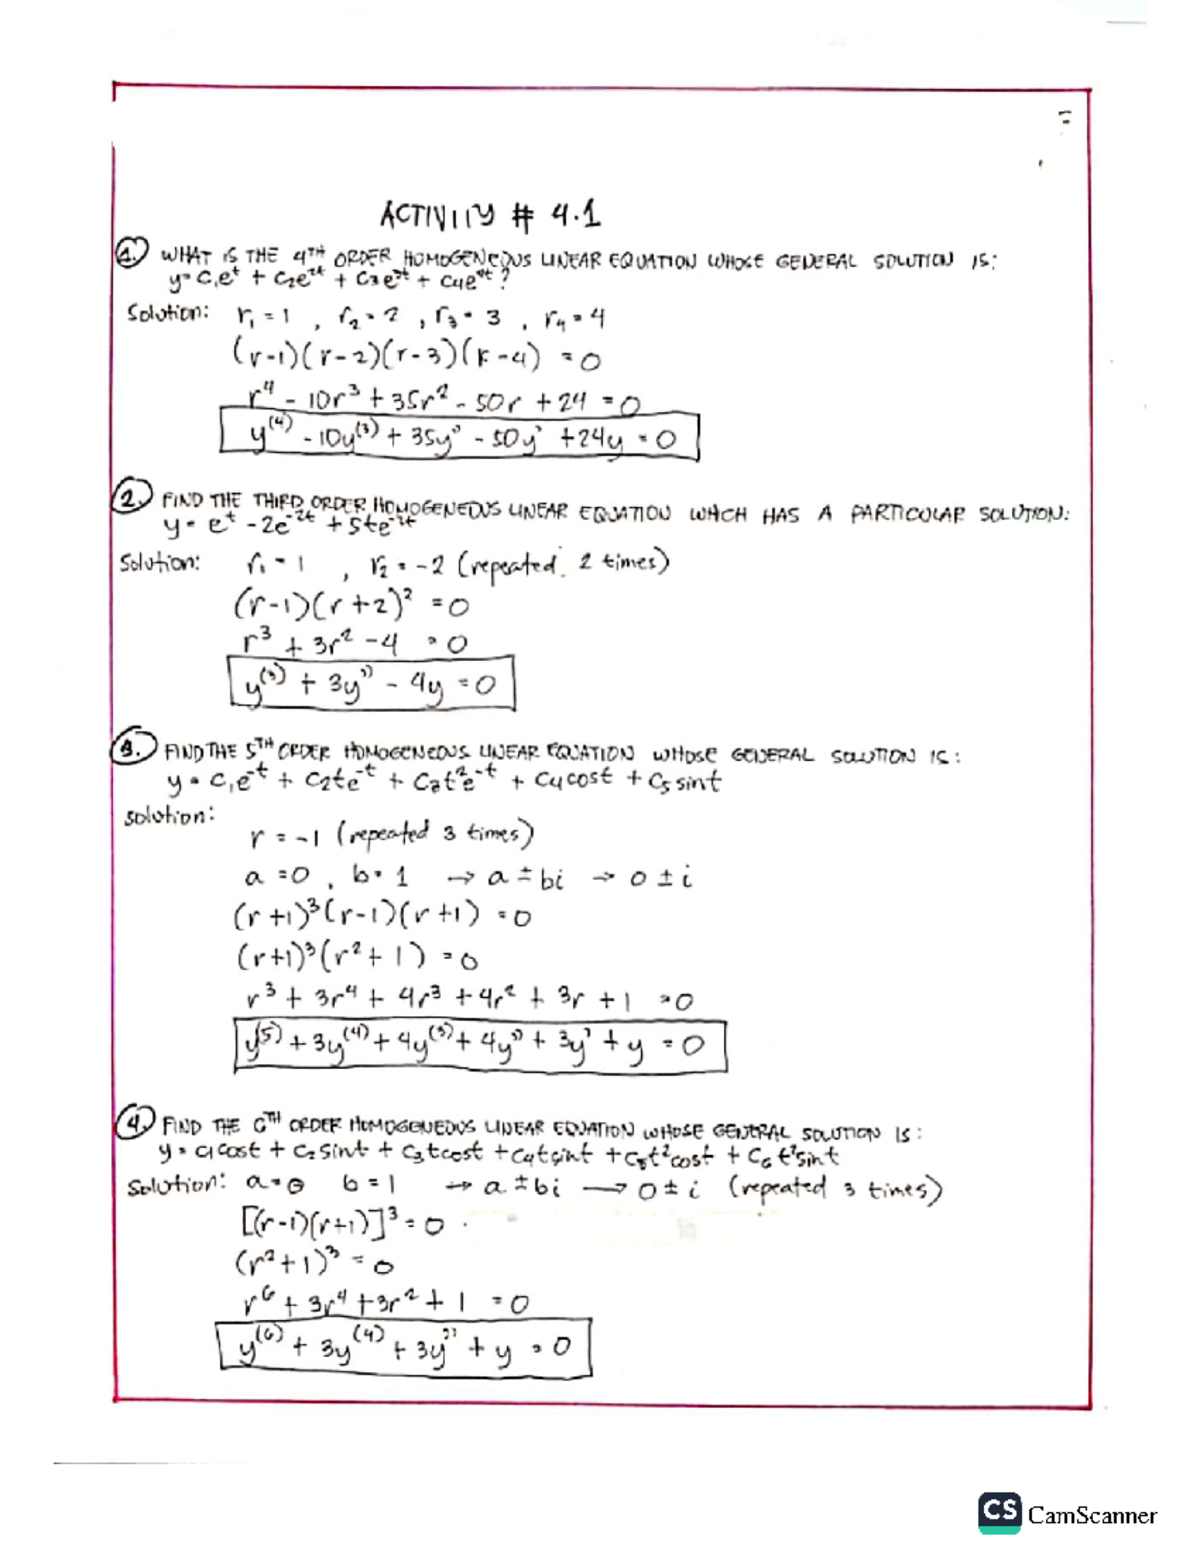 ACTIVITY # 4.1
1. WHAT IS THE 4TH ORDER HOMOGENEOUS LINEAR EQUATION WHOSE GENERAL SOLUTION IS:
y = c₁eᵗ + c₂e²ᵗ + c₃e³ᵗ + c₄e⁴ᵗ ?
Solution: r₁ = 1 , r₂ = 2 , r₃ = 3 , r₄ = 4
(r-1)(r-2)(r-3)(r-4) = 0
r⁴ - 10r³ + 35r² - 50r + 24 = 0
y⁽⁴⁾ - 10y⁽³⁾ + 35y'' - 50y' + 24y = 0
2. FIND THE THIRD ORDER HOMOGENEOUS LINEAR EQUATION WHCH HAS A PARTICULAR SOLUTION:
y = eᵗ - 2e⁻²ᵗ + 5te⁻²ᵗ
Solution: r₁ = 1 , r₂ = -2 (repeated 2 times)
(r-1)(r+2)² = 0
r³ + 3r² - 4 = 0
y⁽³⁾ + 3y'' - 4y = 0
3. FIND THE 5TH ORDER HOMOGENEOUS LINEAR EQUATION WHOSE GENERAL SOLUTION IS:
y = c₁e⁻ᵗ + c₂te⁻ᵗ + c₃t²e⁻ᵗ + c₄cost + c₅sint
solution:
r = -1 (repeated 3 times)
a = 0 , b = 1 → a ± bi → 0 ± i
(r+1)³(r-1)(r+1) = 0
(r+1)³(r²+1) = 0
r³ + 3r⁴ + 4r³ + 4r² + 3r + 1 = 0
y⁽⁵⁾ + 3y⁽⁴⁾ + 4y⁽³⁾ + 4y'' + 3y' + y = 0
4. FIND THE 6TH ORDER HOMOGENEOUS LINEAR EQUATION WHOSE GENERAL SOLUTION IS:
y = c₁cost + c₂sint + c₃tcost + c₄tsint + c₅t²cost + c₆t²sint
Solution: a = 0 b = 1 → a ± bi → 0 ± i (repeated 3 times)
[(r-1)(r+1)]³ = 0
(r²+1)³ = 0
r⁶ + 3r⁴ + 3r² + 1 = 0
y⁽⁶⁾ + 3y⁽⁴⁾ + 3y'' + y = 0
CS CamScanner